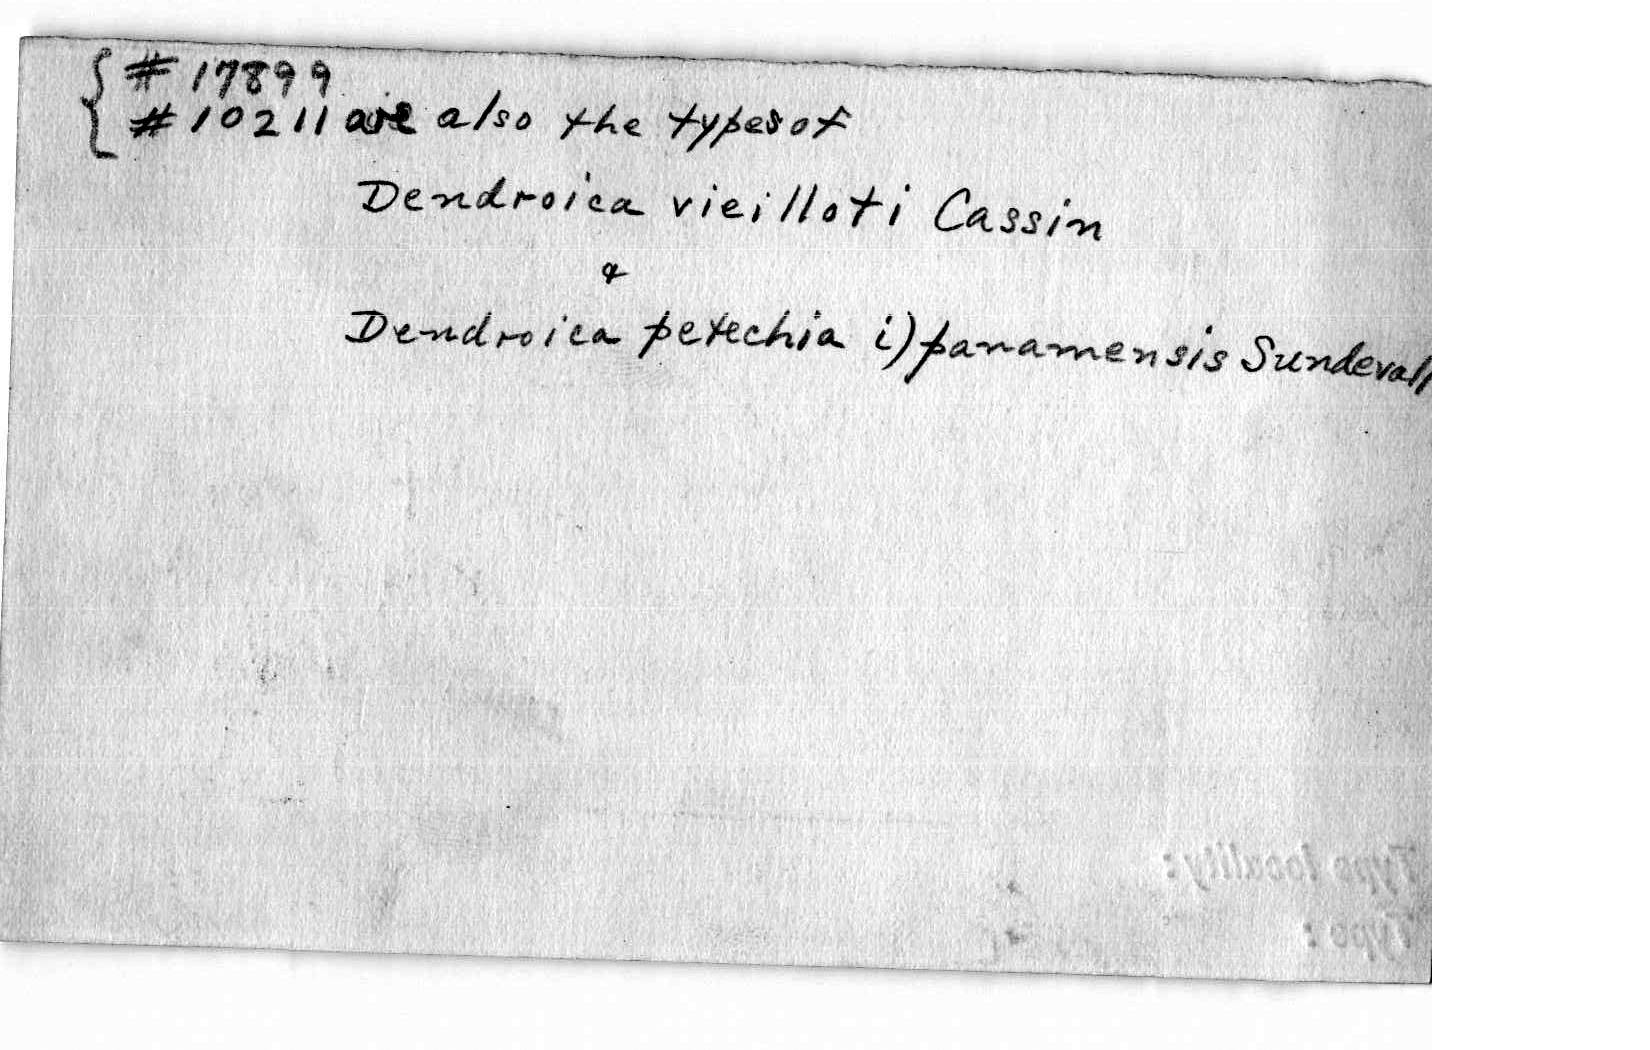 { # 17899
# 10211 are also the types of
Dendroica vieilloti Cassin
&
Dendroica petechia i) panamensis Sundevall
Type locality:
Type: